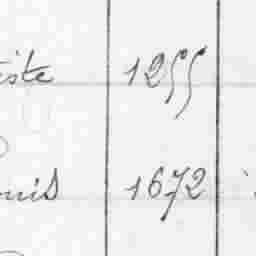 iste 1255
ouis 1672